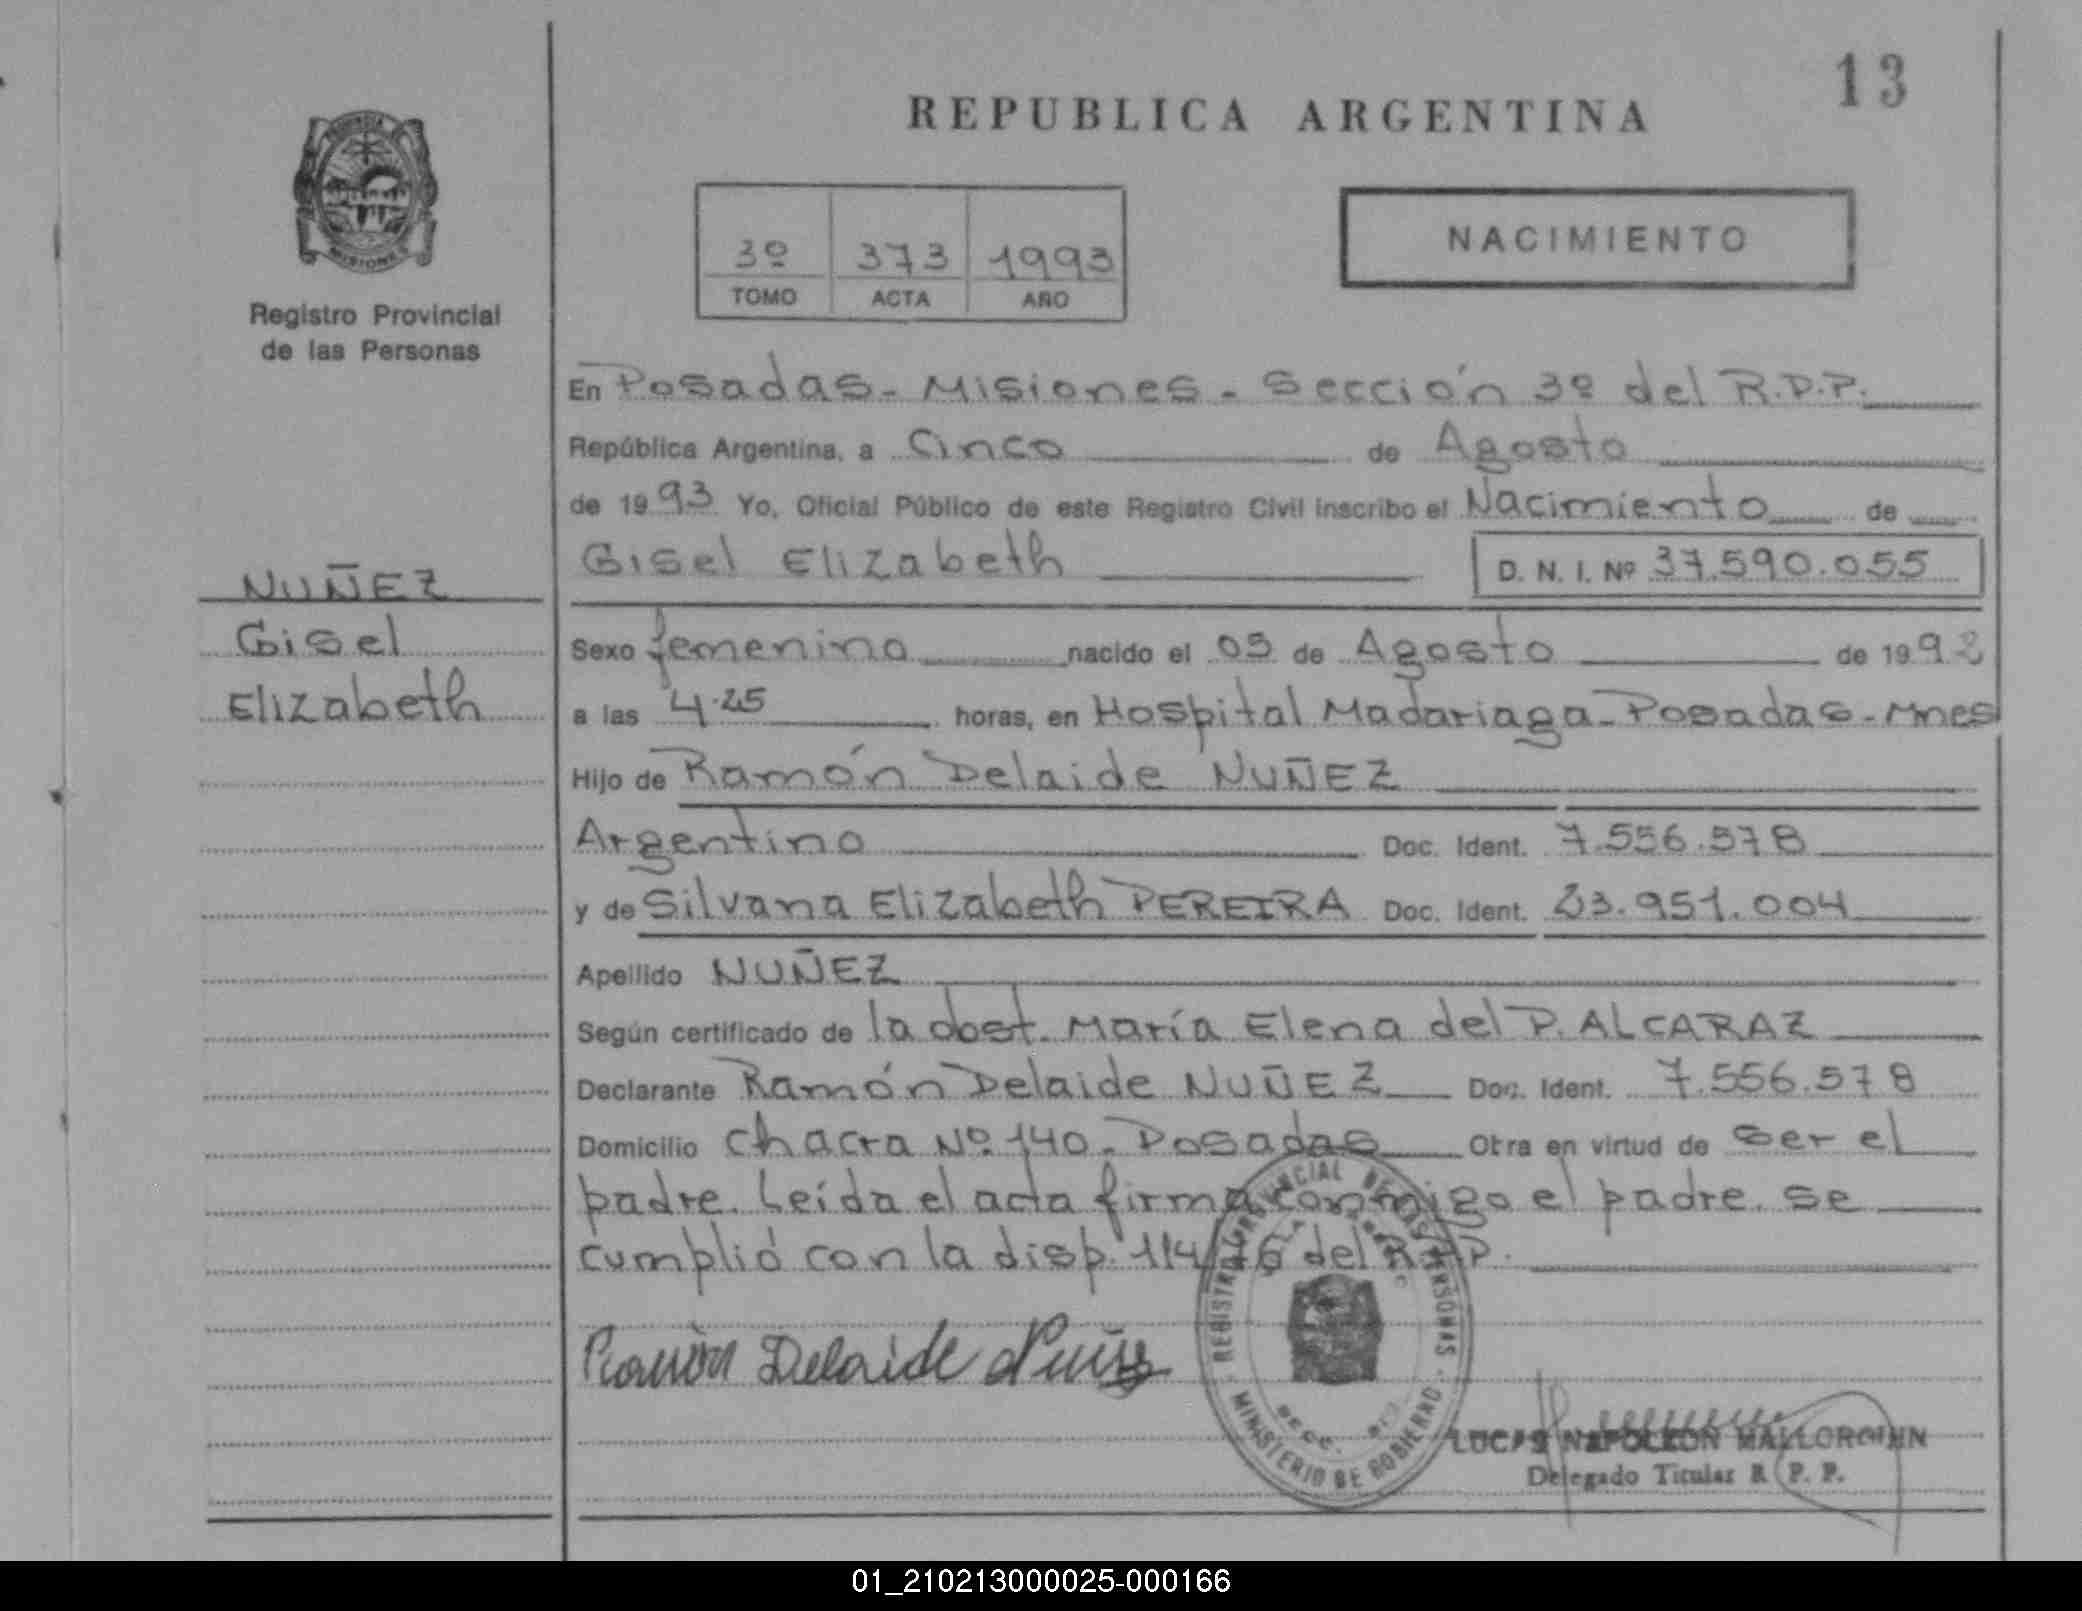 13
REPUBLICA ARGENTINA
PROVINCIA DE
MISIONES
Registro Provincial
de las Personas
3º 373 1993
TOMO ACTA AÑO
NACIMIENTO
En Posadas - Misiones - Sección 3º del R.P.P.
República Argentina, a Cinco de Agosto
de 1993 Yo, Oficial Público de este Registro Civil inscribo el Nacimiento de
Gisel Elizabeth D. N. I. Nº 37.590.055
NUÑEZ
Gisel
Elizabeth
Sexo femenino nacido el 05 de Agosto de 1992
a las 4.25 horas, en Hospital Madariaga - Posadas - Mnes
Hijo de Ramón Delaide NUÑEZ
Argentino Doc. Ident. 7.556.578
y de Silvana Elizabeth PEREIRA Doc. Ident. 23.951.004
Apellido NUÑEZ
Según certificado de la obst. María Elena del P. ALCARAZ
Declarante Ramón Delaide NUÑEZ Doc. Ident. 7.556.578
Domicilio Chacra Nº 140 - Posadas Obra en virtud de ser el
padre. Leída el acta firma conmigo el padre. Se
cumplió con la disp. 114/ del
REGISTRO PROVINCIAL DE LAS PERSONAS
MINISTERIO DE GOBIERNO
Ramón Delaide Nuñez
LUCAS NAPOLEON
Delegado Titular R. P. P.
01_210213000025-000166